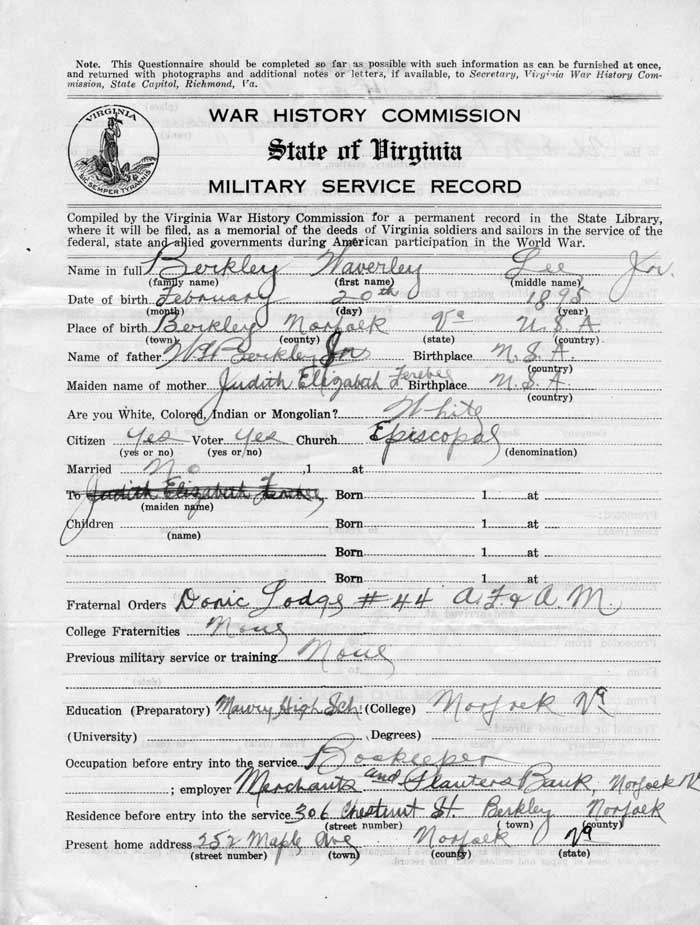 Note. This Questionnaire should be completed so far as possible with such information as can be furnished at once,
and returned with photographs and additional notes or letters, if available, to Secretary, Virginia War History Com-
mission, State Capitol, Richmond, Va.
VIRGINIA
SIC SEMPER TYRANNIS
WAR HISTORY COMMISSION
State of Virginia
MILITARY SERVICE RECORD
Compiled by the Virginia War History Commission for a permanent record in the State Library,
where it will be filed, as a memorial of the deeds of Virginia soldiers and sailors in the service of the
federal, state and allied governments during American participation in the World War.
Name in full Berkley Waverley Lee Jr.
(family name) (first name) (middle name)
Date of birth February 20th 1895
(month) (day) (year)
Place of birth Berkley Norfolk Va U.S.A
(town) (county) (state) (country)
Name of father W L Berkley Jr Birthplace U.S.A.
(country)
Maiden name of mother Judith Elizabeth Ferebee Birthplace U.S.A.
(country)
Are you White, Colored, Indian or Mongolian? White
Citizen Yes Voter Yes Church Episcopal
(yes or no) (yes or no) (denomination)
Married No ,1 at
To Judith Elizabeth Ferebee Born 1 at
(maiden name)
Children Born 1 at
(name)
Born 1 at
Born 1 at
Fraternal Orders Doric Lodge # 44 A.F. & A.M.
College Fraternities None
Previous military service or training None
Education (Preparatory) Maury High Sch (College) Norfolk Va
(University) Degrees)
Occupation before entry into the service Bookeeper
; employer Merchants and Planters Bank, Norfolk Va
Residence before entry into the service 306 Chestnut St. Berkley Norfolk
(street number) (town) (county)
Present home address 252 Maple Ave Norfolk Va
(street number) (town) (county) (state)